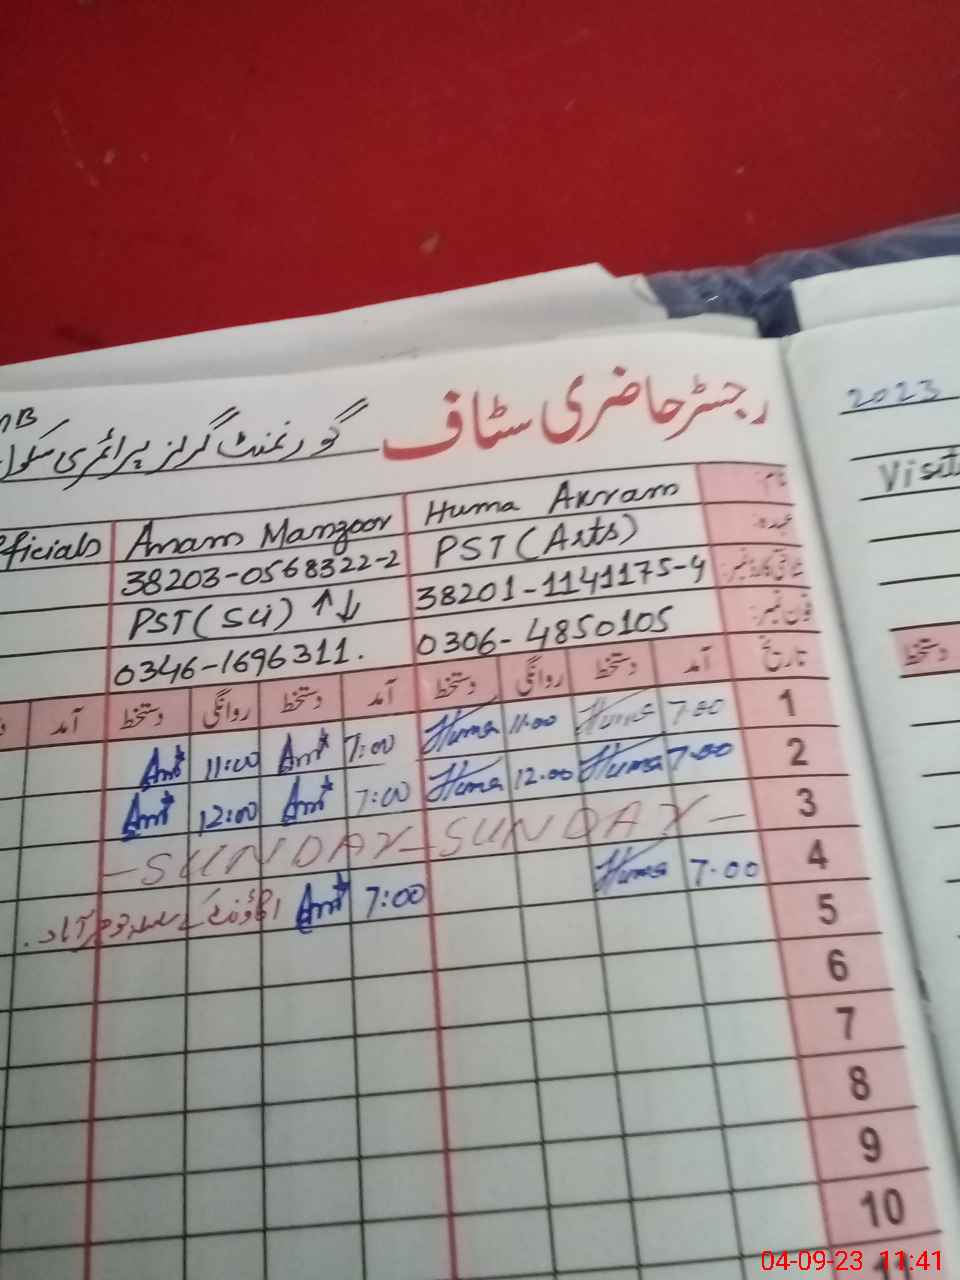 رجسٹر حاضری سٹاف
گورنمنٹ گرلز پرائمری سکول
2023
Visit
نام:
Huma Akram
Anam Manzoor
ficials
عہدہ:
PST (Arts)
38203-0568322-2
شناختی کارڈ نمبر:
38201-1141175-4
PST (Sci) ↑↓
فون نمبر:
0306-4850105
0346-1696311.
تاریخ آمد دستخط روانگی دستخط آمد دستخط روانگی دستخط آمد
دستخط
1 7:00 Huma 11:00 Huma 7:00 Am 11:00 Am
2 7:00 Huma 12:00 Huma 7:00 Am 12:00 Am
3 -SUNDAY-SUNDAY-
4 7:00 Huma 7:00 Am
5
6
7
8
9
10
04-09-23 11:41